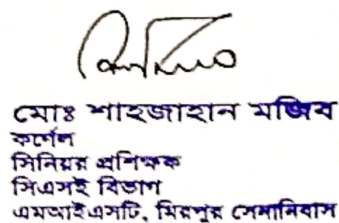 মোঃ শাহজাহান মজিব
কর্ণেল
সিনিয়র প্রশিক্ষক
সিএসই বিভাগ
এমআইএসটি, মিরপুর সেনানিবাস